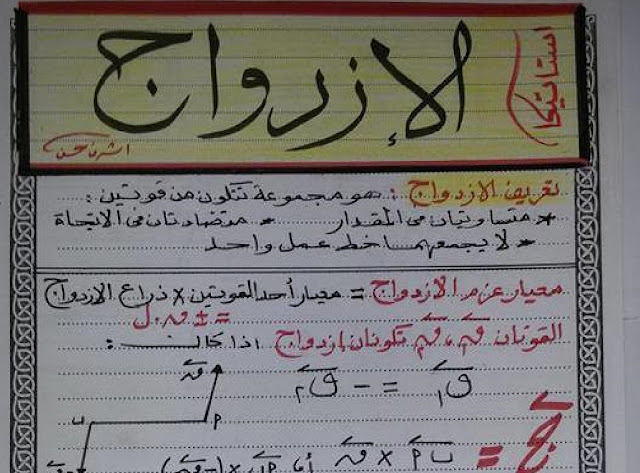 استاتيكا
الإزدواج
اشرف حسن
تعريف الازدواج : هو مجموعة تتكون من قوتين :
* متساويتان فى المقدار * متضادتان فى الاتجاة
* لا يجمعهما خط عمل واحد
معيار عزم الازدواج = معيار أحد القوتين × ذراع الازدواج
= ± ق . ل
القوتان ق١ ، ق٢ تكونان إزدواج اذا كانت :
ق١ = - ق٢
ق
ب م
ج = م ب × ق أ،